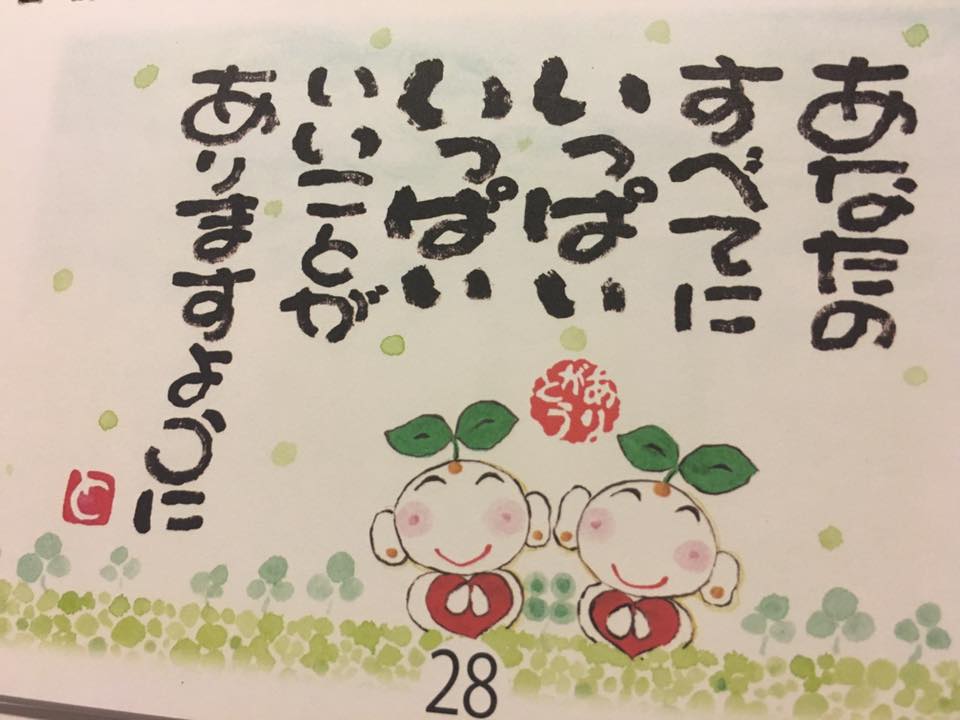 あなたの
すべてに
いっぱい
いっぱい
いいことが
ありますように
ありがとう
と
28